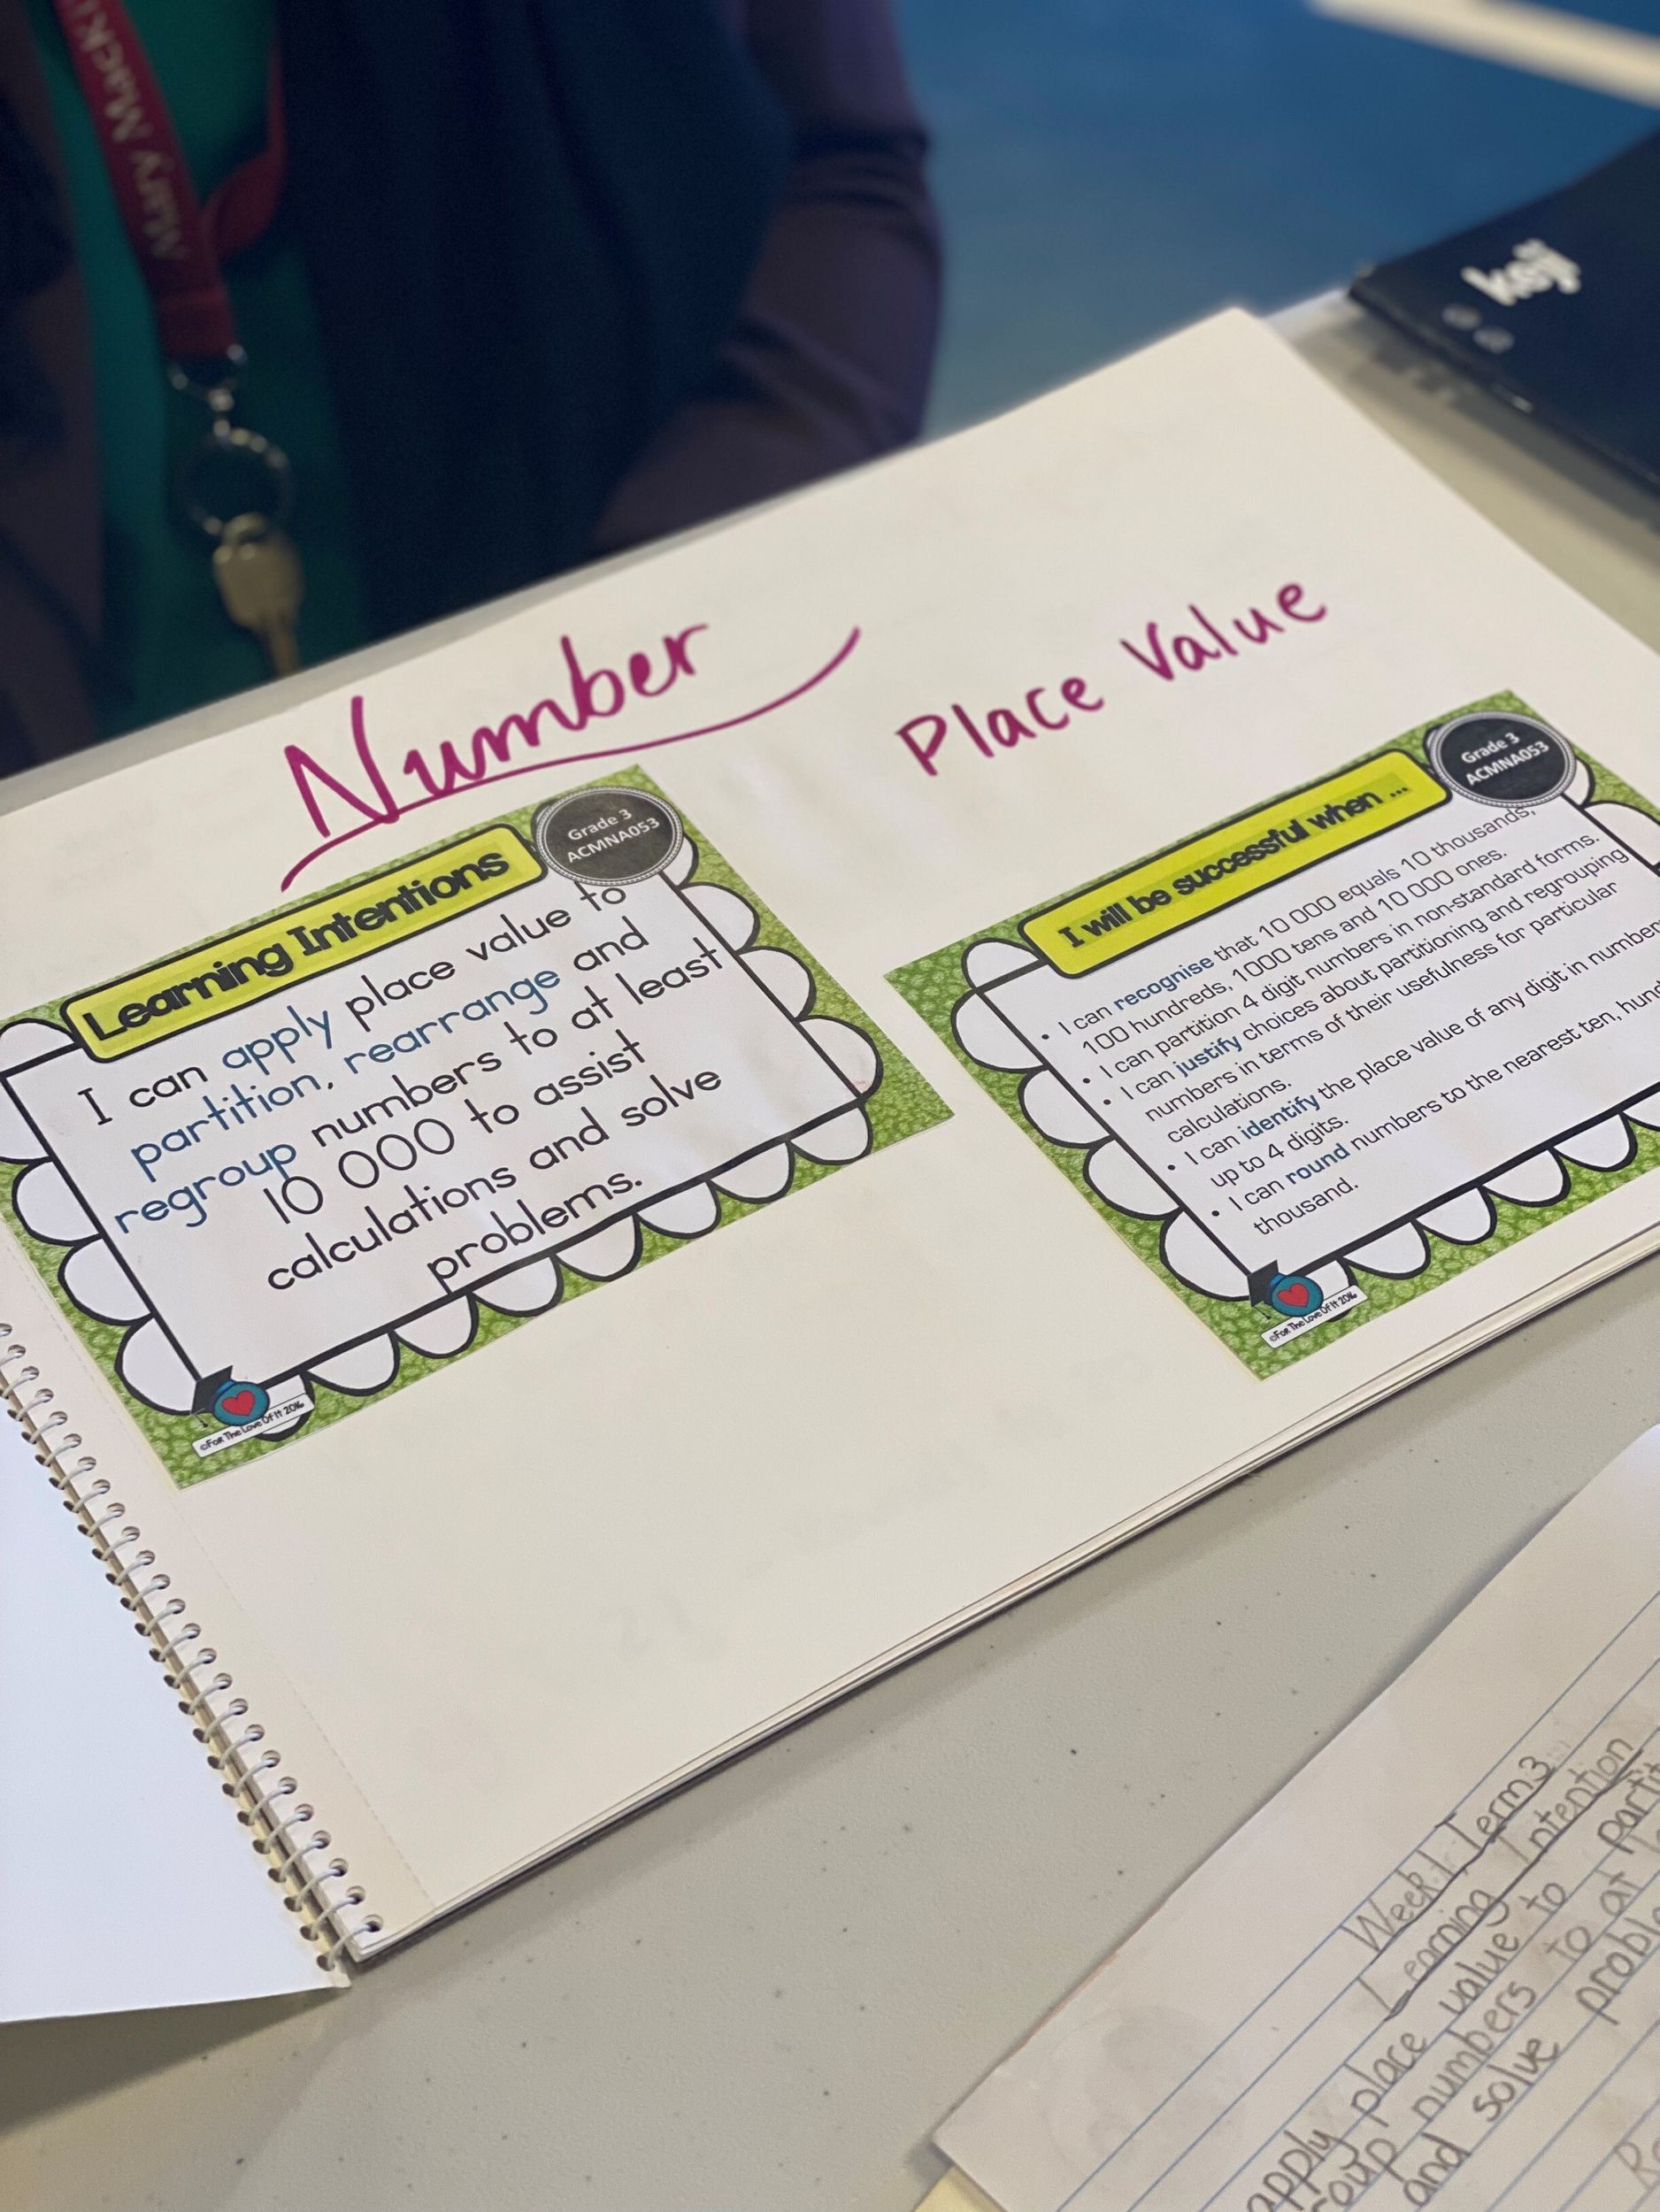 Mary Mack
koji
Number
Place Value
Learning Intentions
Grade 3
ACMNA053
I can apply place value to
partition, rearrange and
regroup numbers to at least
10 000 to assist
calculations and solve
problems.
©For The Love Of It 2016
I will be successful when ...
Grade 3
ACMNA053
• I can recognise that 10 000 equals 10 thousands,
100 hundreds, 1000 tens and 10 000 ones.
• I can partition 4 digit numbers in non-standard forms.
• I can justify choices about partitioning and regrouping
numbers in terms of their usefulness for particular
calculations.
• I can identify the place value of any digit in numbers
up to 4 digits.
• I can round numbers to the nearest ten, hund
thousand.
©For The Love Of It 2016
Week 1, Term 3
Learning Intention
apply place value to partit
roup numbers to at
and solve proble